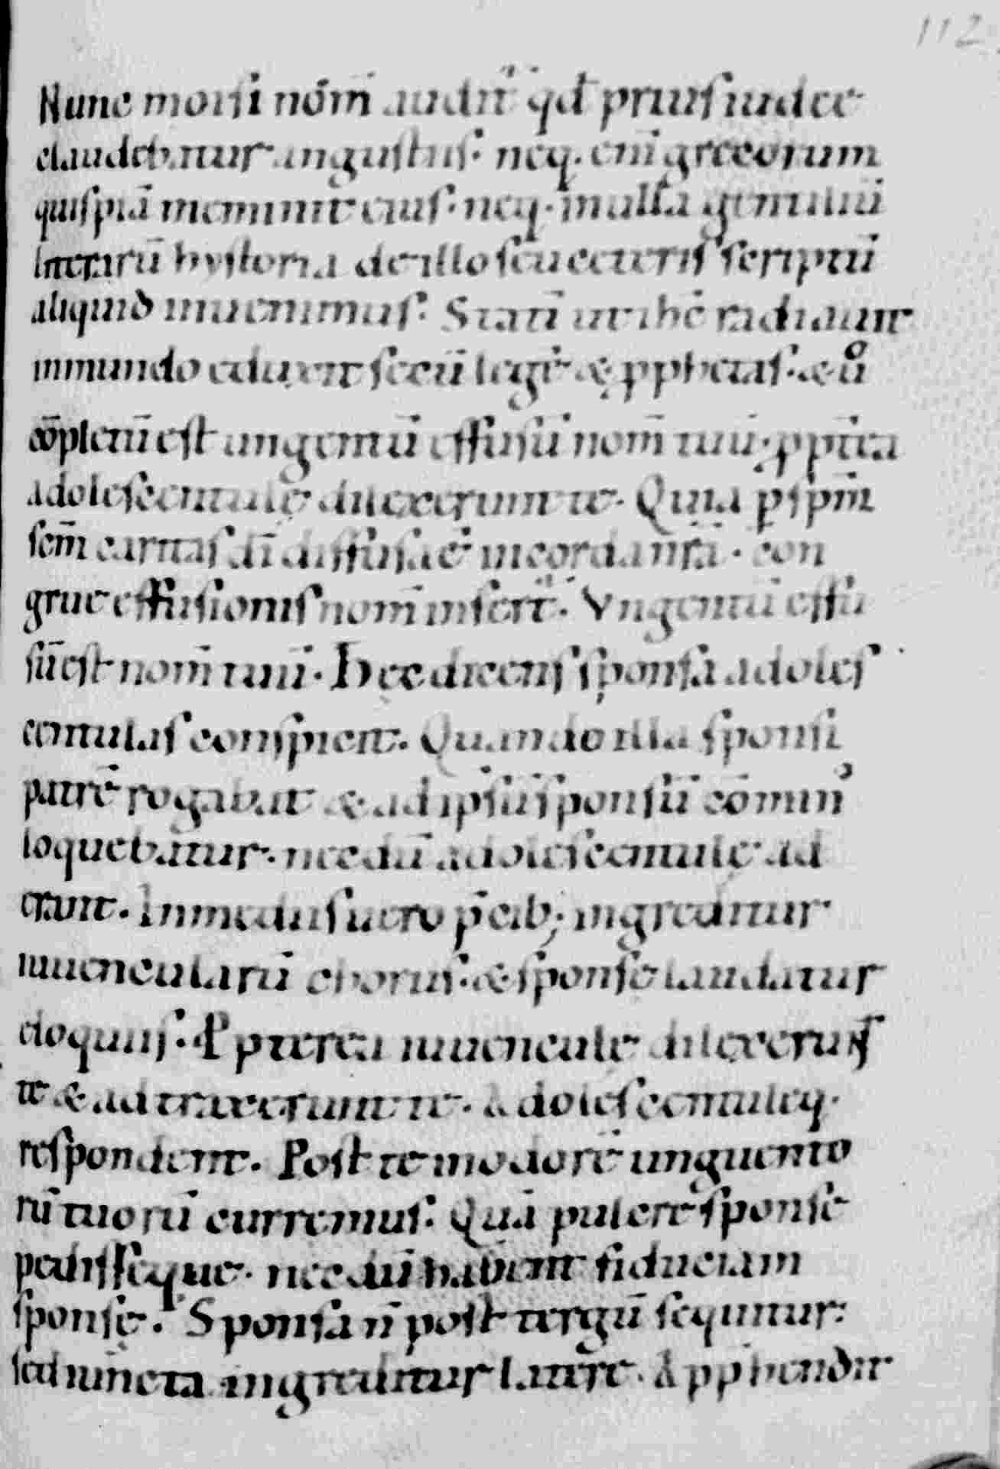 112
Nunc moisi nom̄ audit̄ qd̄ prius iudeę
claudebatur angustiis· neq· eni᷒ grecorum
quispiā meminit eius· neq· in ulla gentiliū
litterarū hystoria de illo seu ceteris scriptū
aliquid inuenimus· Statī ut ihc̄ radiauit
in mundo eduxit secū legē & ꝓphetas· & ū
cōpletū est unguentū effusū nom̄ tuū· ꝓpt̄ea
adolescentulę dilexerunt te· Quia ꝑ spm̄
scm̄ caritas dī diffusa ē in corda nr̄a· con
grue effusionis nom̄ inserit̄· Vngentū effu
sū est nom̄ tuū· Hęc dicens sponsa adoles
centulas conspicit· Quando illa sponsi
patrē rogabat & ad ipsū sponsū cōmin᷒
loquebatur· necdū adolescentulę ad
erant· In mediis uero p̄cib; ingreditur
iuuencularū chorus· & sponsę laudatur
eloquiis· Ꝓpterea iuuenculę dilexerunt
te & adtraxerunt te· Adolescentulęq·
respondent· Post te in odorē unguento
rū tuorū curremus· Quā pulcre sponsę
pedisseque· necdū habent fiduciam
sponsę· Sponsa n̄ post tergū sequitur:
sed iūncta ingreditur latere· Apphendit